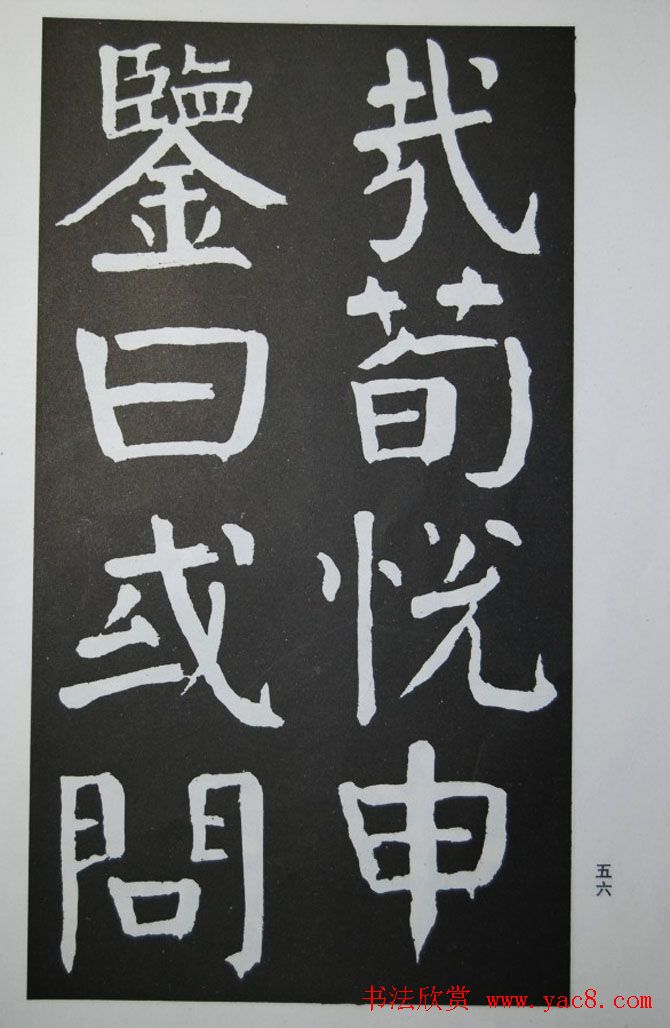 哉荀悦申
鑒曰或問
五六
书法欣赏 www.yac8.com